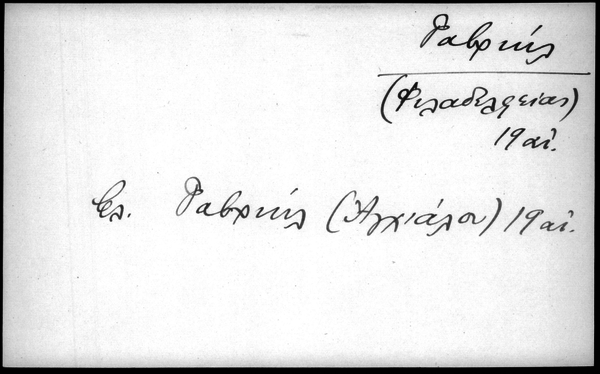 Γαβριήλ
(Φιλαδελφείας)
19 αἰ.
βλ. Γαβριήλ (Ἀγχιάλου) 19 αἰ.